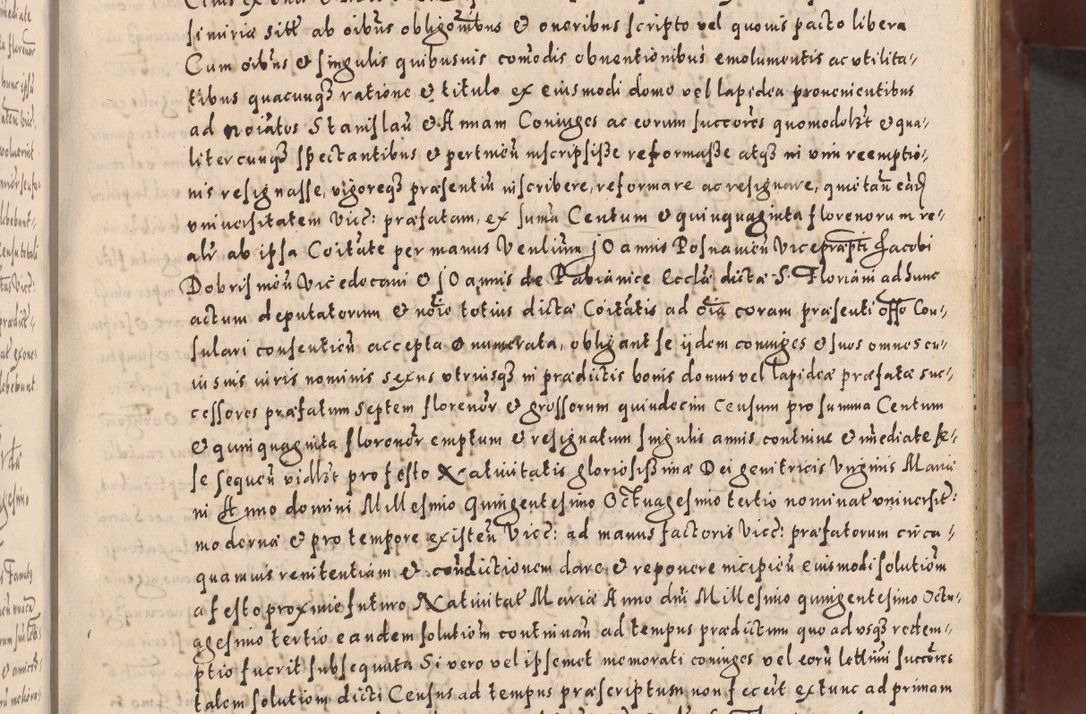 siniria sitt ab oibus obligonibus et oneribus scripto vel quovis pacto libera
Cum oibus et singulis quibusvis comodis obventionibus emolumentis ac utilita-
tibus quacunqz ratione et titulo ex eiusmodi domo vel lapidea provenientibus
ad noiatos Stanislau et Annam Coniuges ac eorum succores quomodolzt et qua-
litercunqz spectantibus et pertineu inscripsisse reformasse atqz in vim reemptio-
nis resignasse, vigoreqz præsentiu inscribere, reformare ac resignare, quitau
universitatem Vicc: præfatam, ex suma Centum et quinquaginta florenorum re-
ali ab ipsa Coitate per manus Venlium JOannis Posnanieu Vicepræpti Jacobi
Dobrismieu Vicedecani et JOannis de Pabianice Ecclæ dictæ S. Floriani ad hunc
actum deputatorum et noie totius dictæ Coitatis ad oia coram præsenti offo Con-
sulari consentieu accepta et numerata, obligant se ijdem coniuges et suos omnes cu-
iusuis iuris nominis sexus utriusqz in prædictis bonis domus vel lapideæ præfatæ suc-
cessores præfatum septem florenor et grossorum quindecim Censum pro summa Centum
et quinquaginta florenor emptum et resignatum singulis annis continue et imediate se-
se sequeu vidlzt pro festo Nativitatis gloriosissimæ Dei genitricis Virginis Mariæ
in Anno domini Millesimo Quingentesimo Octuagesimo tertio nominat universit:
modernæ et pro tempore existeu Vicc: ad manus factoris Vicc: præfatorum circa-
quamvis renitentiam et condictionem dare et reponere incipieu eiusmodi solutiom
a festo proximie futuro Nativitat Mariæ Anno dni Millesimo quingentesimo Octu-
agesimo tertio eandem solutiom continuau ad tempus prædictum quo ad usqz redem-
ptio fuerit subsequuta Si vero vel ipsemet memorati coniuges vel eoru letlimi succores
talem solutiom dicti Census ad tempus præscriptum non feceit extunc ad primam